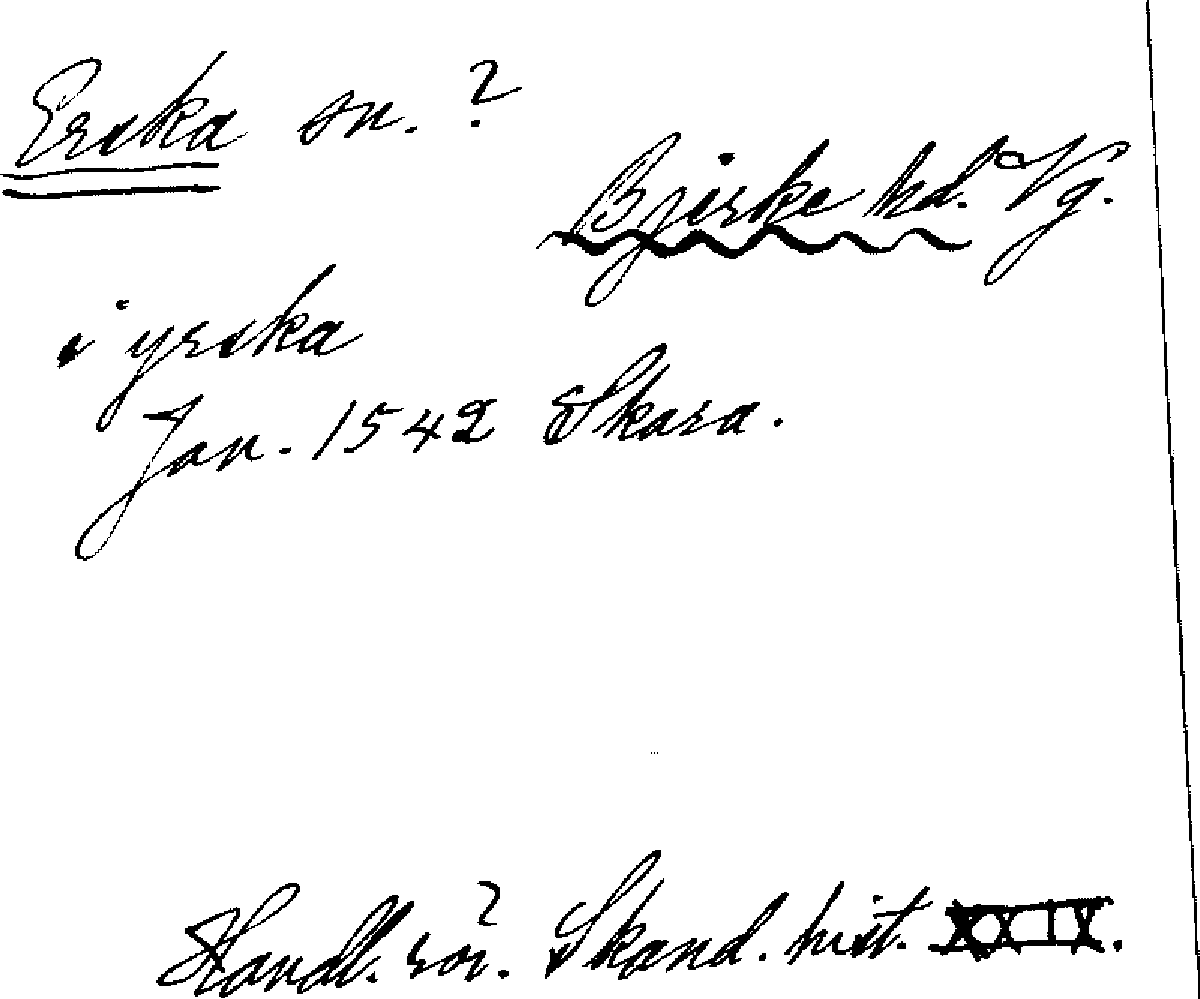 Erska sn. ?
Bjerke hd. Vg.
i yrska
Jan. 1542 Skara.
Handl. rör. Skand. hist. XXIX.